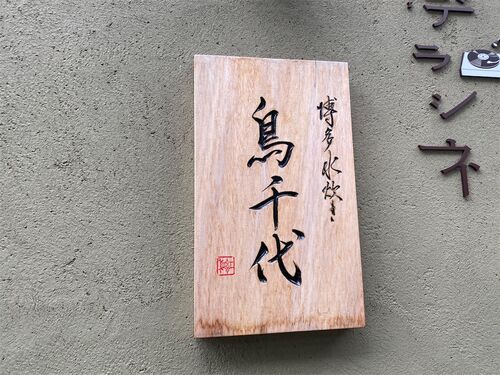 博多水炊き
鳥千代
デラシネ